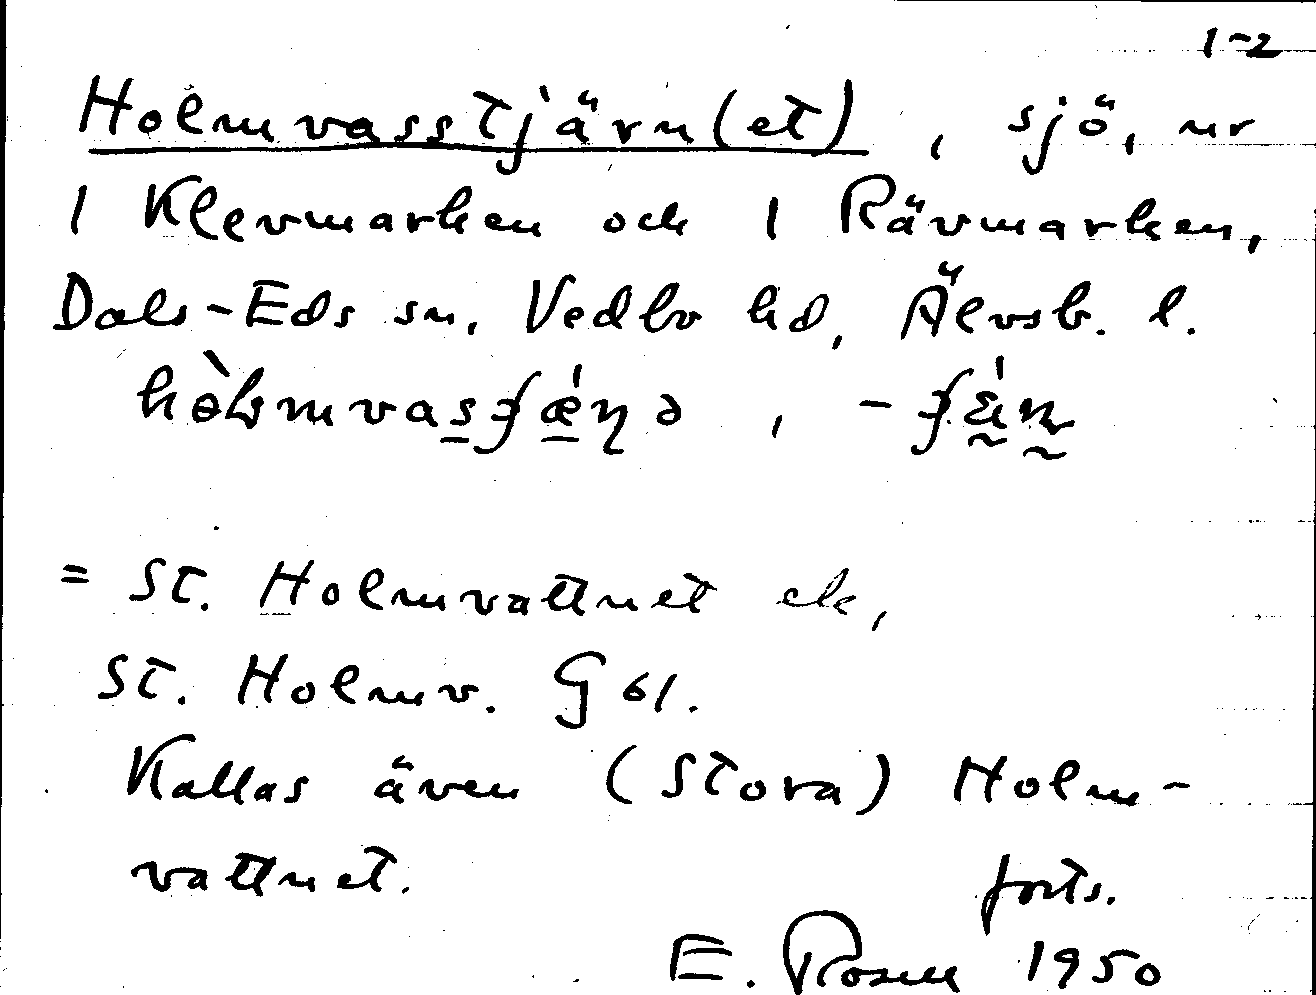 1-2
Holmvasstjärn(et), sjö, nr
1 Klevmarken och 1 Rävmarken,
Dals-Eds sn, Vedbo hd, Älvsb. l.
= St. Holmvattnet ek,
St. Holmv. G 61.
Kallas även (Stora) Holm-
vattnet.
forts.
E. Rosell 1950